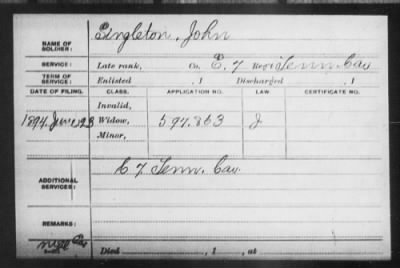 NAME OF SOLDIER: Singleton, John
SERVICE: Late rank, Co. E. 7 Reg't Tenn. Cav
TERM OF SERVICE: Enlisted , 1 Discharged , 1
DATE OF FILING. CLASS. APPLICATION NO. LAW. CERTIFICATE NO.
Invalid,
1894, June 23 Widow, 597.863 J
Minor,
ADDITIONAL SERVICES: E 7 Tenn. Cav.
REMARKS:
Died , 1 , at